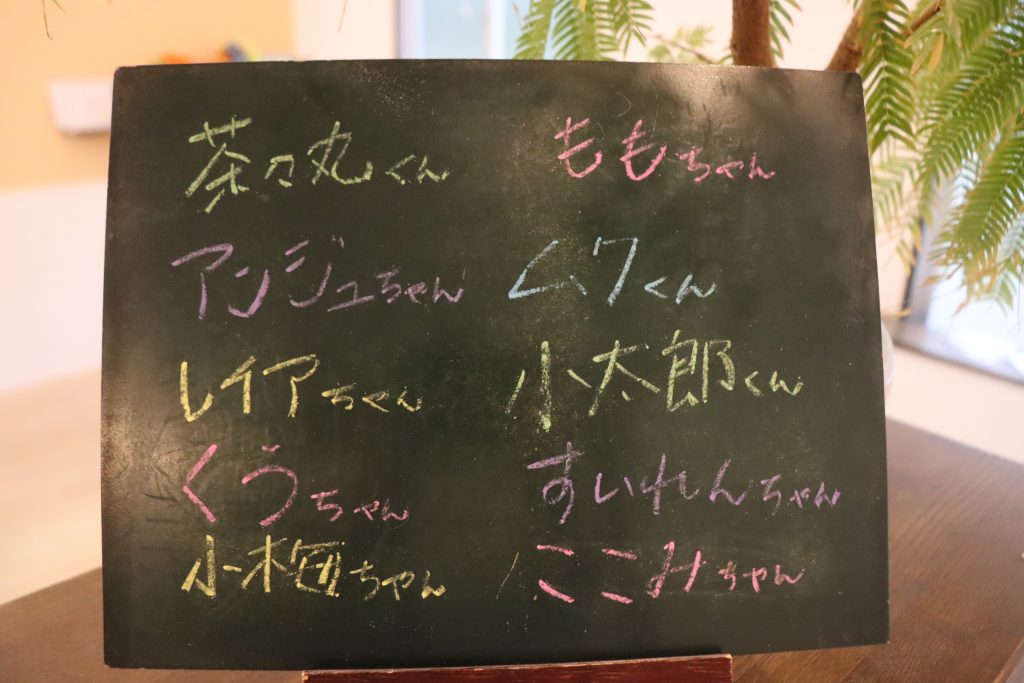 茶々丸くん ももちゃん
アンジュちゃん ムクくん
レイアちゃん 小太郎くん
くうちゃん すいれんちゃん
小梅ちゃん ここみちゃん